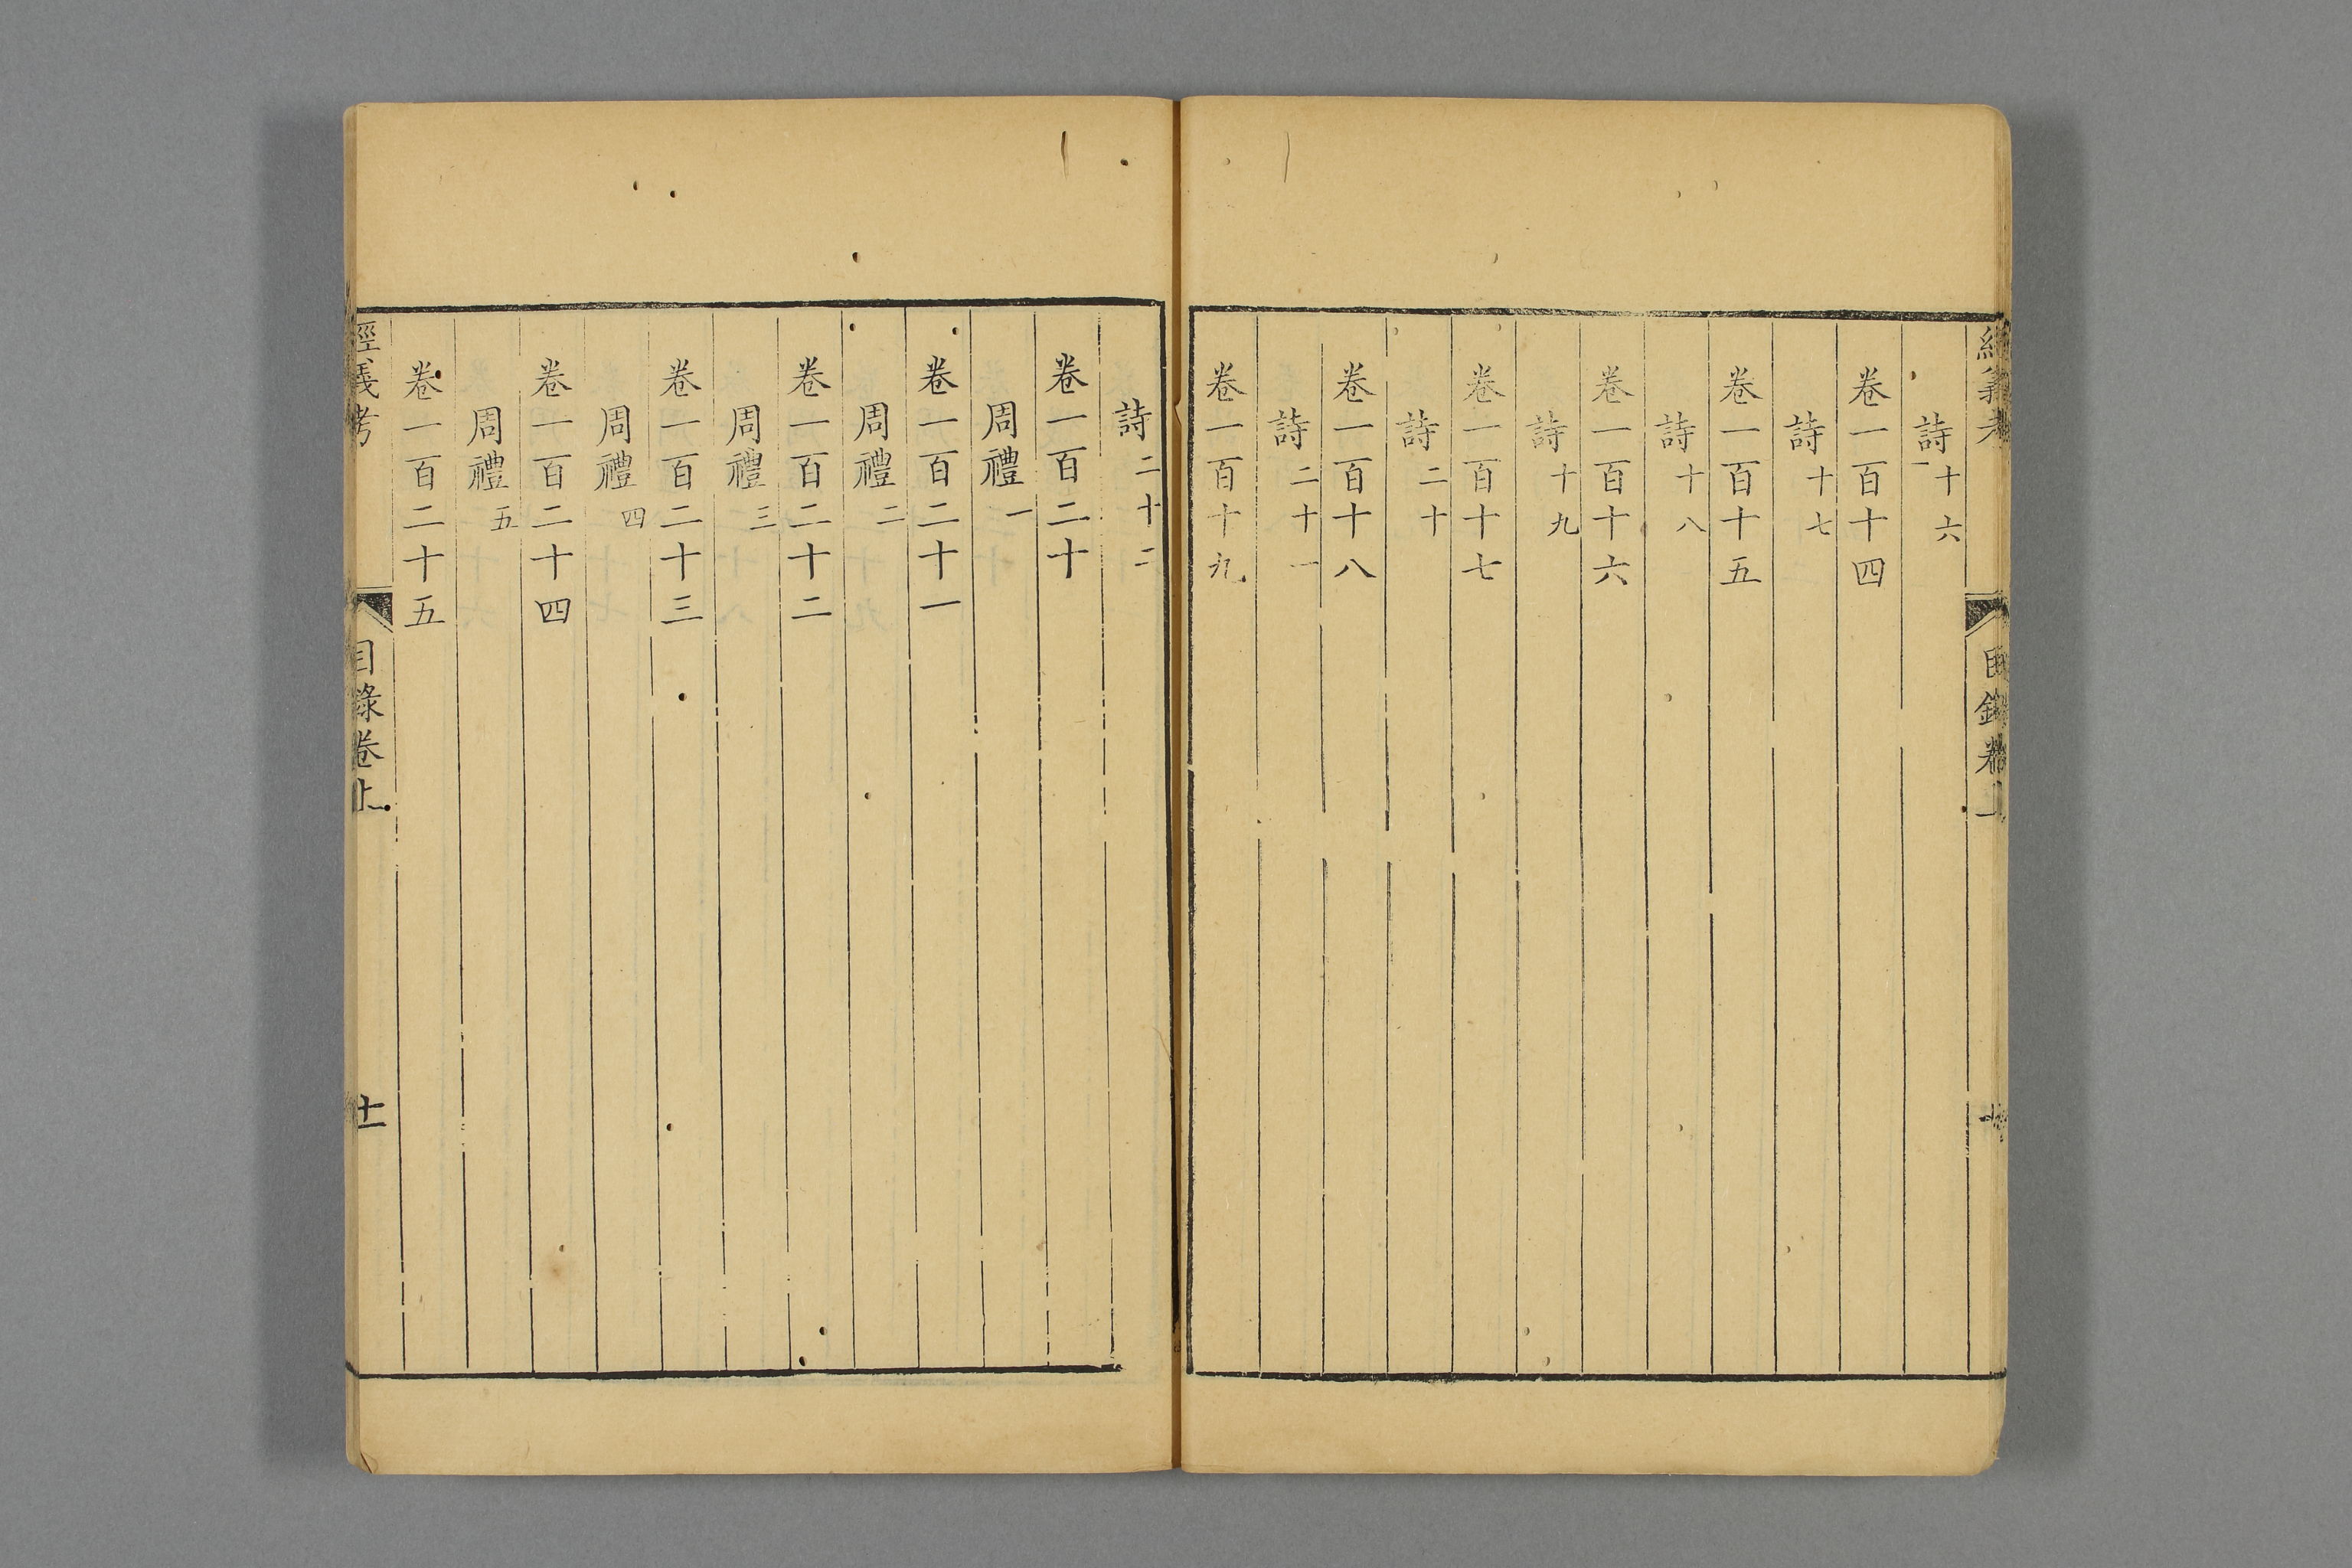 經義考
目錄卷上
十
詩十六
卷一百十四
詩十七
卷一百十五
詩十八
卷一百十六
詩十九
卷一百十七
詩二十
卷一百十八
詩二十一
卷一百十九
詩二十二
卷一百二十
周禮一
卷一百二十一
周禮二
卷一百二十二
周禮三
卷一百二十三
周禮四
卷一百二十四
周禮五
卷一百二十五
經義考
目錄卷上
十一